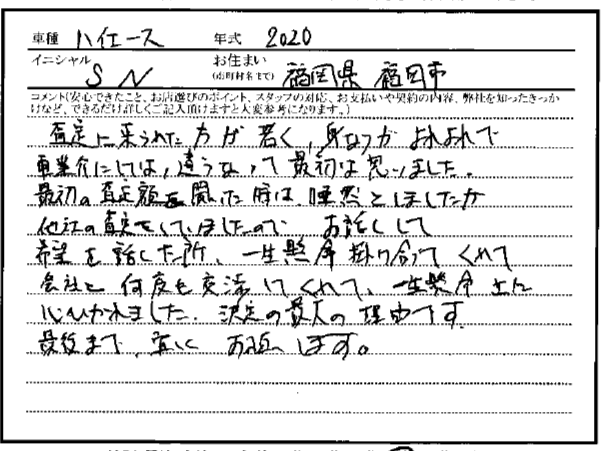 車種 ハイエース 年式 2020
イニシャル S N お住まい(市町村名まで)福岡県 福岡市
コメント(安心できたこと、お店選びのポイント、スタッフの対応、お支払いや契約の内容、弊社を知ったきっか
けなど、できるだけ詳しくご記入頂けますと大変参考になります。)
査定に来られた方が若く、身なりがよれよれで
車業者にしては、違うなって最初は思いました。
最初の査定額を聞いた時は、唖然としましたが
他社の査定をしていましたので お話しして
希望を話した所、一生懸命掛け合ってくれて
会社と何度も交渉してくれて、一生懸命さに
心ひかれました。決定の最大の理由です。
最後まで、宜しくお願いします。